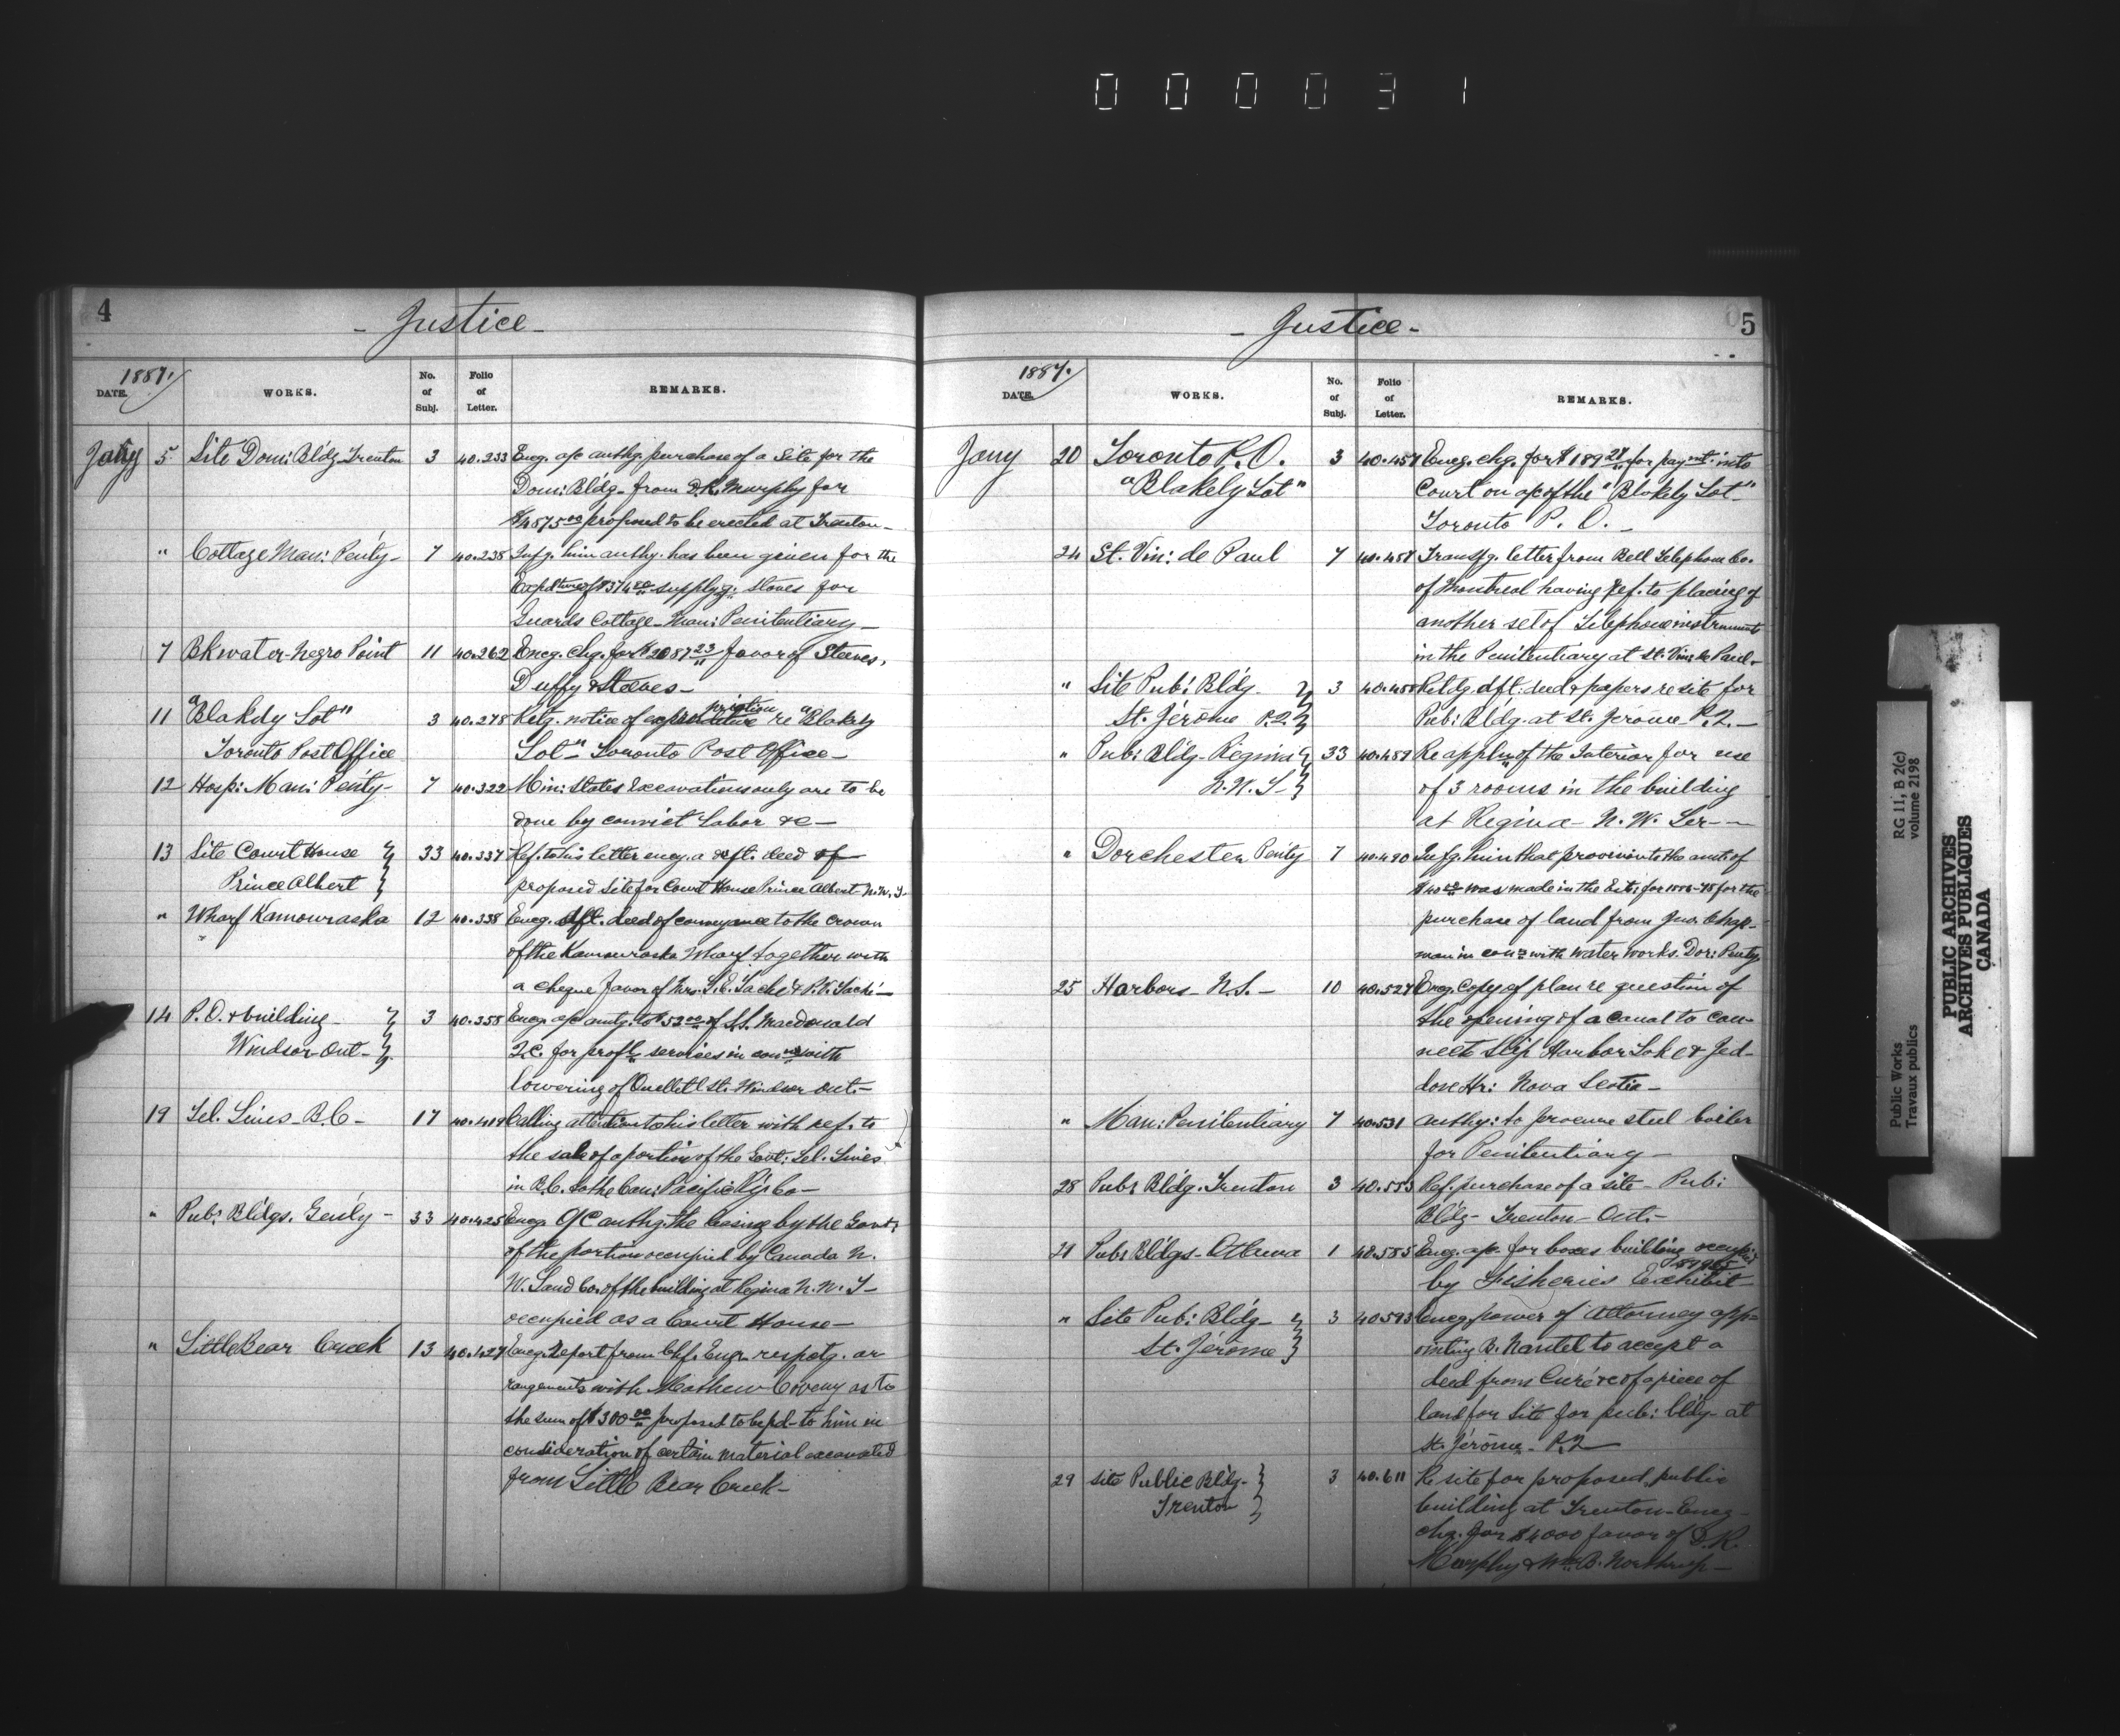 000031
4
- Justice -
1887.
DATE.
WORKS.
No. of Subj.
Folio of Letter.
REMARKS.
Jany 5 Site Dom: Bldg Trenton 3 40.233 Encg. o/c authg. purchase of a Site for the
Dom: Bldg - from D.R. Murphy for
$4875.00 proposed to be erected at Trenton -
" Cottage Man: Penty - 7 40.238 Infg. him authy. has been given for the
Expdture of $374.00 supplyg: stoves for
Guards Cottage - Man: Penitentiary -
7 Bkwater - Negro Point 11 40.262 Encg. chq. for $2087.23 favor of Steeves,
Duffy & Steeves -
11 "Blakely Lot" 3 40.278 Retg. notice of expropriation re "Blakely
Toronto Post Office Lot" Toronto Post Office -
12 Hosp: Man: Penty - 7 40.322 Min: States Excavations only are to be
done by convict labor &c -
13 Site Court House 33 40.337 Ref. to his letter encg. a dft. deed of
Prince Albert proposed site for Court House Prince Albert N.W.T.
" Wharf Kamouraska 12 40.338 Encg. dft. deed of conveyance to the Crown
of the Kamouraska Wharf together with
a cheque favor of Mrs. S.E. Taché & P.V. Taché -
14 P.O. & building - 3 40.358 Encg. a/c amtg. to $52.00 of S.S. Macdonald
Windsor - Ont - Q.C. for profl. services in conn with
lowering of Ouellett St. Windsor Ont. -
19 Tel. Lines - B.C - 17 40.419 Calling attention to his letter with ref. to
the sale of a portion of the Govt: Tel. Lines
in B.C. to the Can: Pacific Ry: Co -
" Pub: Bldgs. Genly - 33 40.425 Encg. O/C authg. the leasing by the Govt.
of the portion occupied by Canada N.
W. Land Co. of the building at Regina N.W.T -
occupied as a Court House -
" Little Bear Creek 13 40.427 Encg. Report from Chf. Engr. respctg. ar
rangements with Mathew Coveny as to
the sum of $300.00 proposed to be pd - to him in
consideration of certain material excavated
from Little Bear Creek -
5
- Justice -
1887.
DATE.
WORKS.
No. of Subj.
Folio of Letter.
REMARKS.
Jany 20 Toronto P.O. 3 Encg. chq. for $189 for paymt. into
"Blakely Lot" Court on a/c of the "Blakely Lot"
Toronto P.O. -
24 St. Vin: de Paul 7 Transfg. letter from Bell Telephone Co.
of Montreal having ref. to placing of
another set of Telephone instruments
in the Penitentiary at St. Vin: de Paul -
" Site Pub: Bldg - 3 Retdg dft: deed & papers re site for
St. Jérôme P.Q. Pub: Bldg. at St. Jérôme P.Q. -
" Pub: Bldg - Regina 33 40.489 Re appln of the Interior for use
N.W.T - of 3 rooms in the building
at Regina - N.W. Ter -
" Dorchester Penty 7 40.490 Infg. him that provision to the amt. of
was made in the Ests: for for the
purchase of land from Jno. Chap-
man in conn with water works. Dor: Penty.
25 Harbors - N.S. - 10 40.527 Encg. Copy of plan re question of
the opening of a Canal to con-
nect Ship Harbor Lake & Jed-
dore Hr: Nova Scotia -
" Man: Penitentiary 7 40.531 authy: to procure steel boiler
for Penitentiary -
28 Pub: Bldg. Trenton 3 40.553 Ref. purchase of a site - Pub:
Bldg - Trenton - Ont. -
Pub: Bldgs - Ottawa 1 Encg. a/c for boxes building occupied
by Fisheries Exhibit
" Site Pub: Bldg - 3 40593 Encg power of Attorney app-
St. Jérôme ointing B. Nantel to accept a
deed from Curé &c of a piece of
land for site for pub: bldg - at
St. Jérôme - P.Q
29 Site Public Bldg - 3 40.611 R. site for proposed public
Trenton building at Trenton - Encg -
chq. for $4000 favor of D.R.
Murphy & Wm. B. Northrup -
RG 11, B 2(c)
volume 2198
Public Works
Travaux publics
PUBLIC ARCHIVES
ARCHIVES PUBLIQUES
CANADA